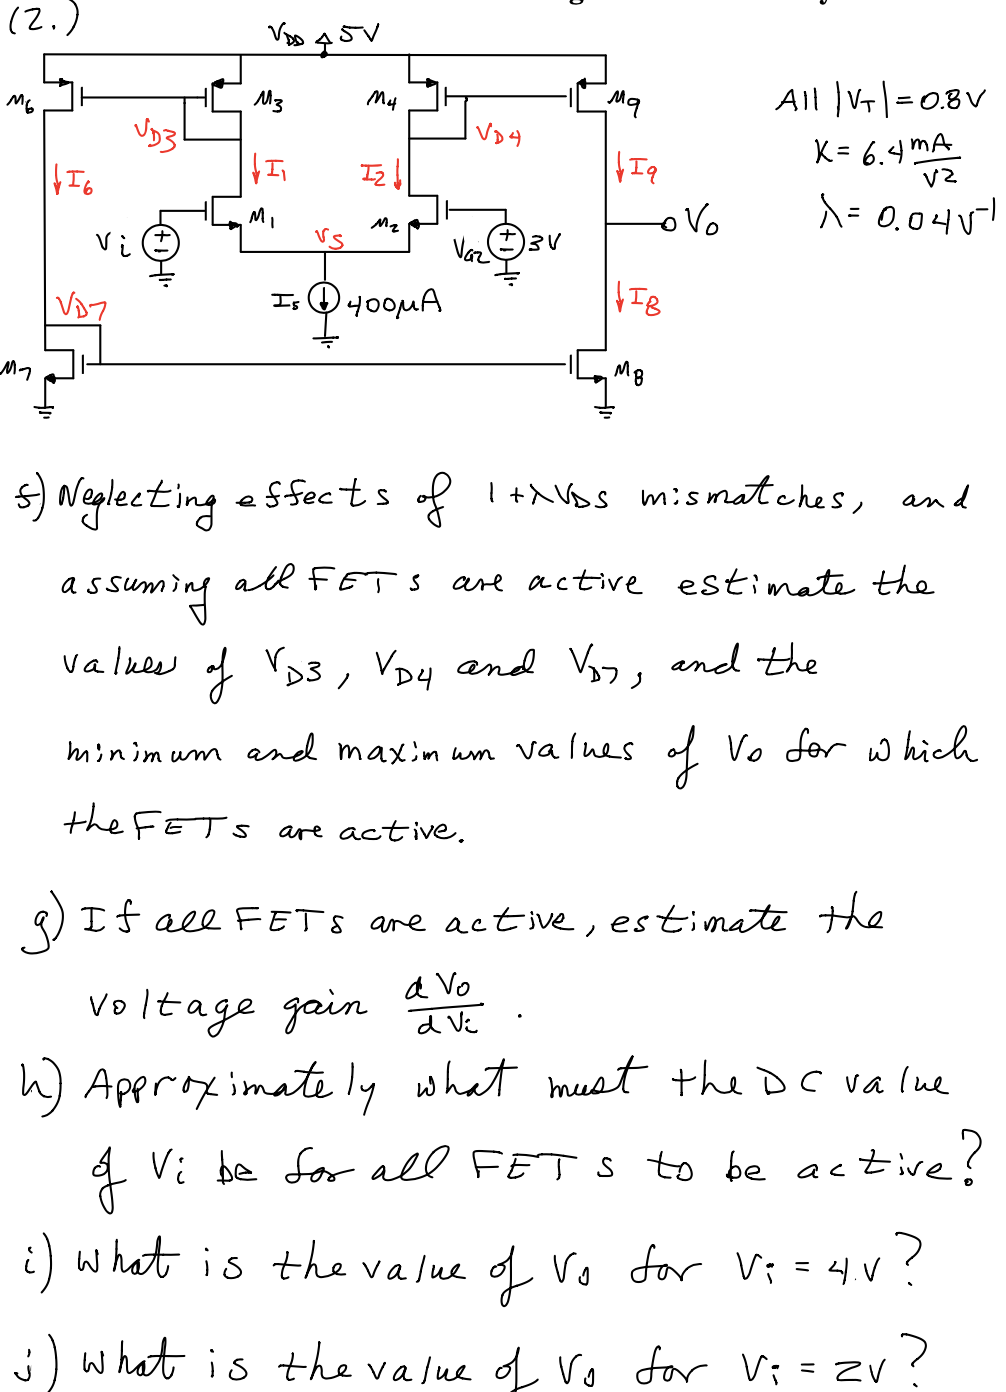 (2.)
VDD 5V
M6 M3 M4 M9
All |VT| = 0.8V
VD3 VD4
K = 6.4 mA/V²
I6 I1 I2 I9
λ = 0.04V⁻¹
M1 M2
Vi VS VG2 3V Vo
VD7 IS 400µA I8
M7 M8
f) Neglecting effects of 1+λVDS mismatches, and
assuming all FETs are active estimate the
values of VD3, VD4 and VD7, and the
minimum and maximum values of Vo for which
the FETs are active.
g) If all FETs are active, estimate the
voltage gain dVo/dVi .
h) Approximately what must the DC value
of Vi be for all FETs to be active?
i) What is the value of Vo for Vi = 4V?
j) What is the value of Vo for Vi = 2V?